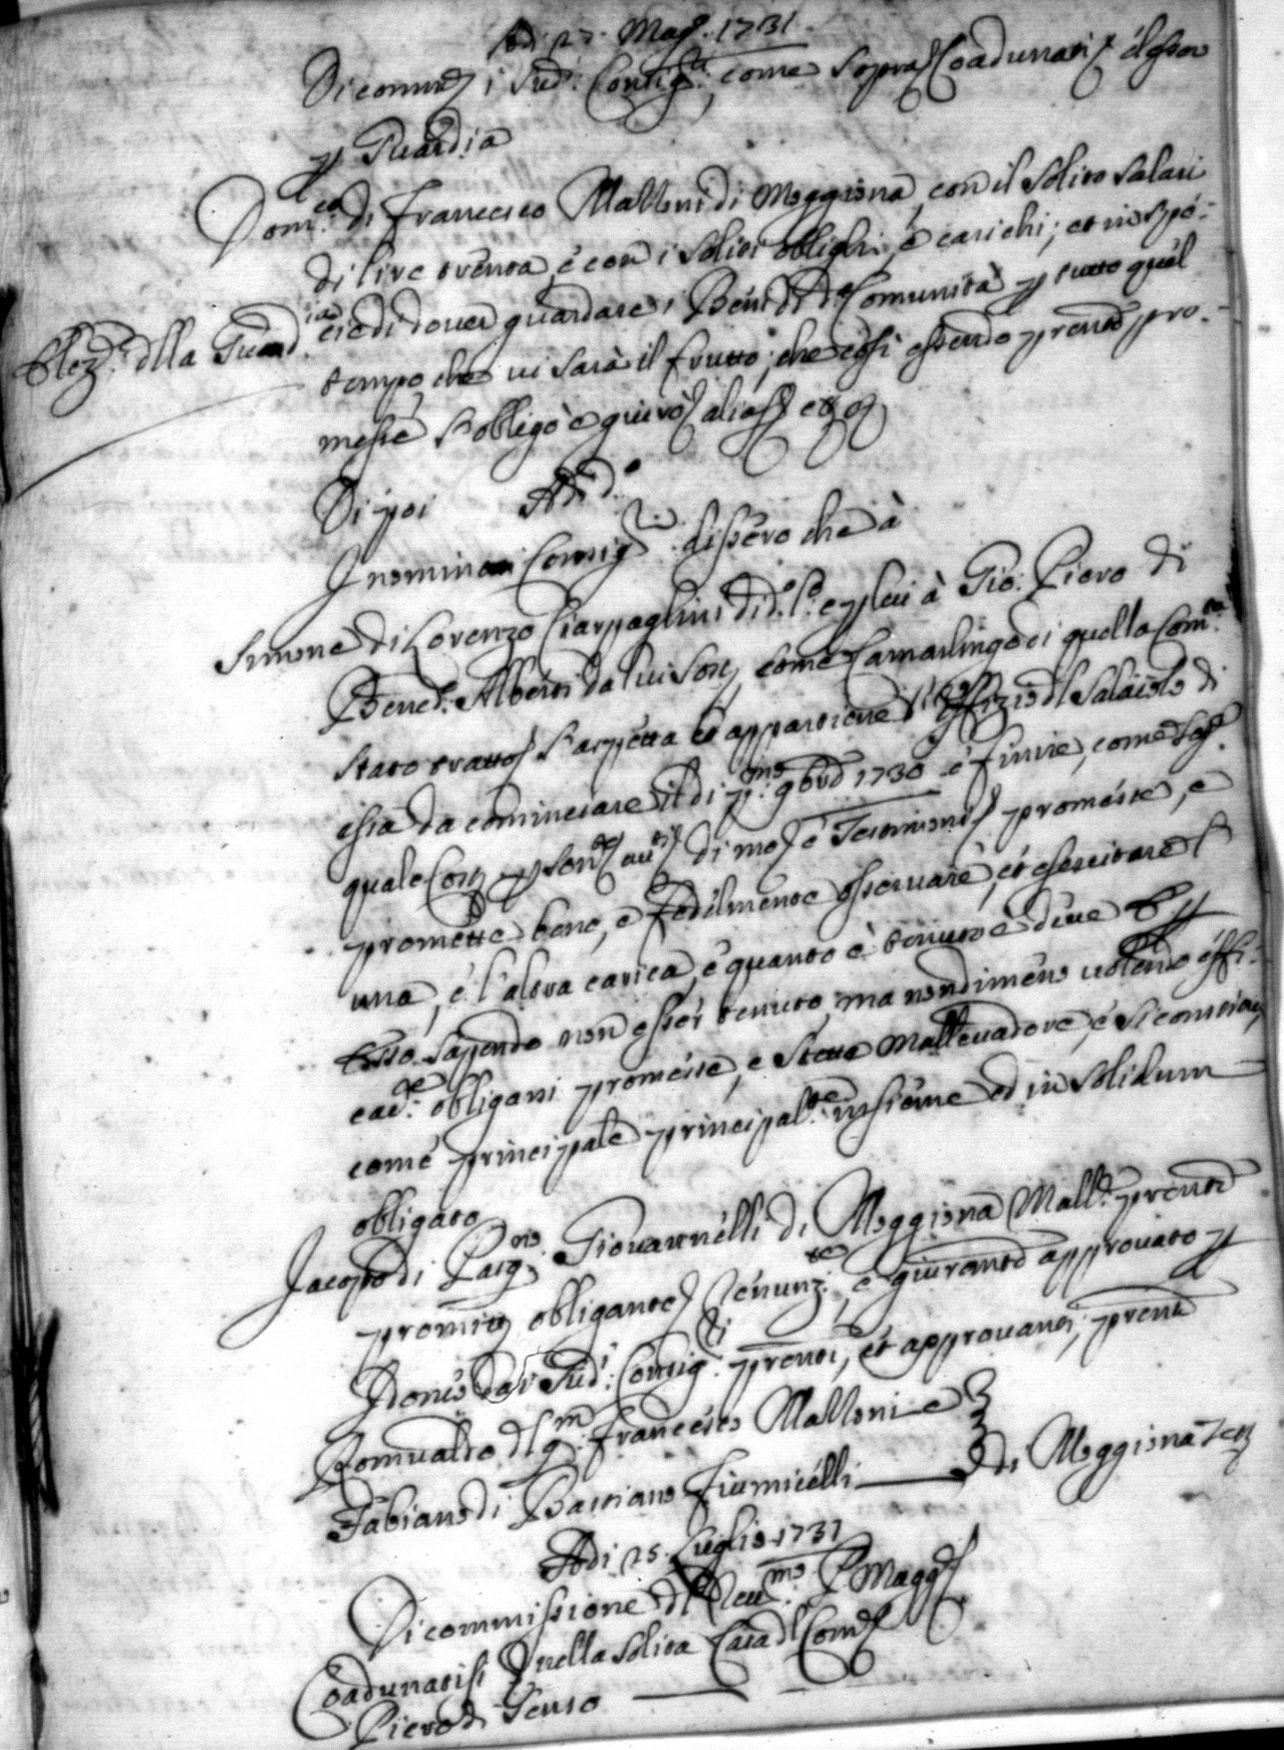 Adi 27. Magg. 1731.
Di comund. i Sudi. Consigri. come sopra Coadunatisi elessero
p Guardia
Domco. di Francesco Malloni di Moggiona con il solito salari
di lire trenta, è con i soliti oblighi, è carichi; et in spé-
Elez.e dlla Guardia cie di dover guardare i Beni di da Comunità p tutto quel
tempo, che vi sarà il frutto, che così essendo presente pro-
messe s'obligò è giurò alias etc
Di poi Adi do
I nominati Consigri dissero che à
Simone di Lorenzo Ciarpaglini di do. lo. e p lui à Gio: Piero di
Bened. Alberti da lui Sost. come Camarlingo di quella Comtà
stato tratto s'aspetta et appartiene l'offizio dl Salaiolo di
essa da cominciare il di pmo. 9bre 1730 è finire, come Seg.
quale Cost. p Sonde. avti di me è Testimoni promesse, e
promette bene, e fedelmente osservare, et esercitare l'
una, e l'altra carica, è quanto è tenuto è deve E p
Esso sapendo non esser tenuto, ma nondimeno volendo effi-
cace. obligarsi promesse, e stette Mallevadore, è si constituì
come principale principalte. insieme ed in solidum
obligato
Jacopo di Pasqno. Giovannélli di Moggiona Malle. presente
promitte obligante renunzte, è giurante approvato p
Idoneo dai Sudi. Consigri. presenti, et approvanti; presenti
Romualdo dl qm. Francesco Malloni e
Fabiano di Bastiano Fiumicélli di Moggiona Tes
Adi 25. Luglio 1731
Di commissione dl Revmo. P Magg.
Coadunatisi nella solita Casa dl Come
Piero di Senso